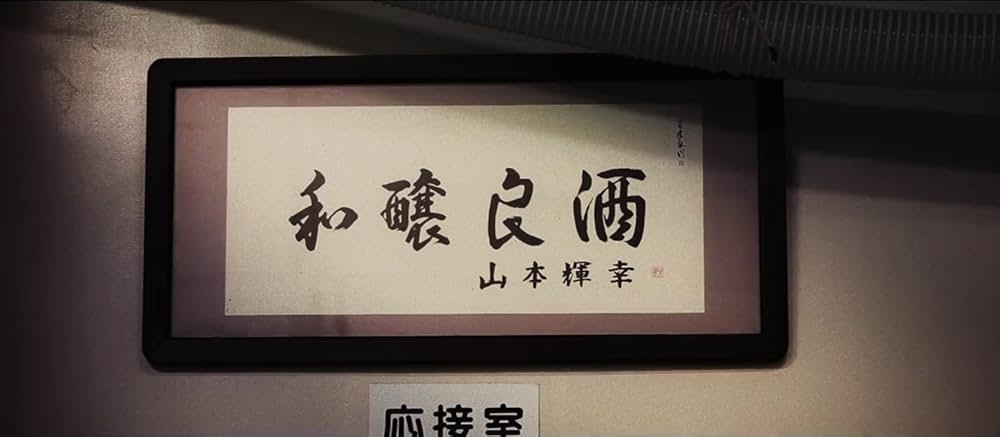 和醸良酒
山本輝幸
応接室